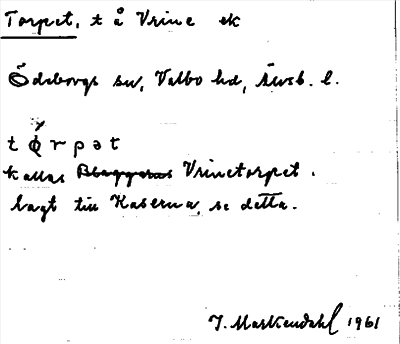 Torpet, t å Vrine ek
Ödeborgs sn, Valbo hd, Älvsb. l.
t ǿ r p ə t
kallas Vrinetorpet.
lagt till Kaserna, se detta.
J. Markendahl 1961